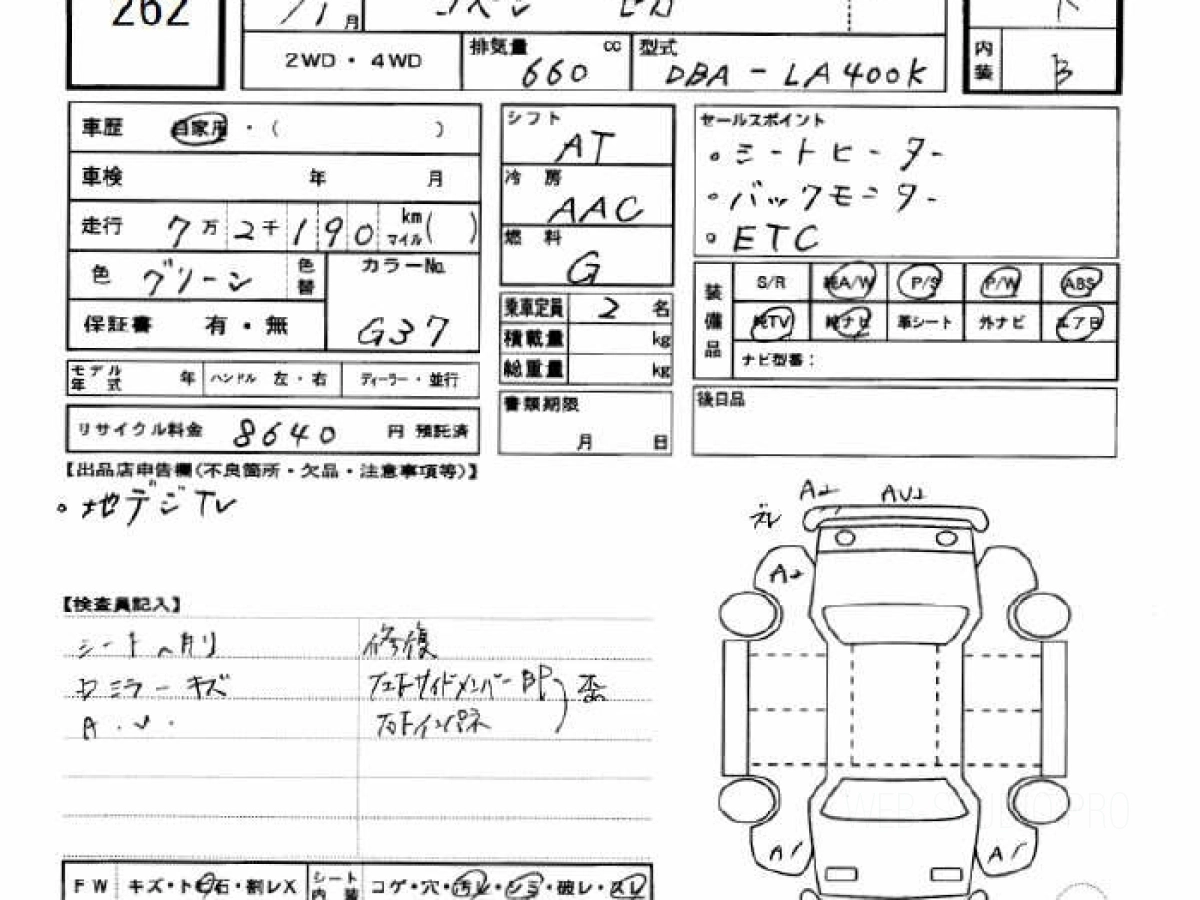 262
/1月
コペン セロ
2WD・4WD 排気量 660 cc 型式 DBA-LA400K
内装 B
車歴 自家用・( )
車検 年 月
走行 7万2千190 km マイル( )
色 グリーン 色替 カラーNo. G37
保証書 有・無
モデル年式 年 ハンドル 左・右 ディーラー・並行
リサイクル料金 8640 円 預託済
シフト AT
冷房 AAC
燃料 G
乗車定員 2 名
積載量 kg
総重量 kg
書類期限
月 日
セールスポイント
。シートヒーター
。バックモニター
。ETC
装備品 S/R 純A/W P/S P/W ABS
純TV 純ナビ 革シート 外ナビ エアB
ナビ型番:
後日品
【出品店申告欄(不良箇所・欠品・注意事項等)】
。地デジTV
【検査員記入】
シートヘタリ
Dミラーキズ
A.U.
修復
サイドメンバー
歪
ズレ A2 AU2
A2
A1 A1
WEB PRO
FW キズ・トビ石・割レX シート内装 コゲ・穴・汚レ・シミ・破レ・スレ